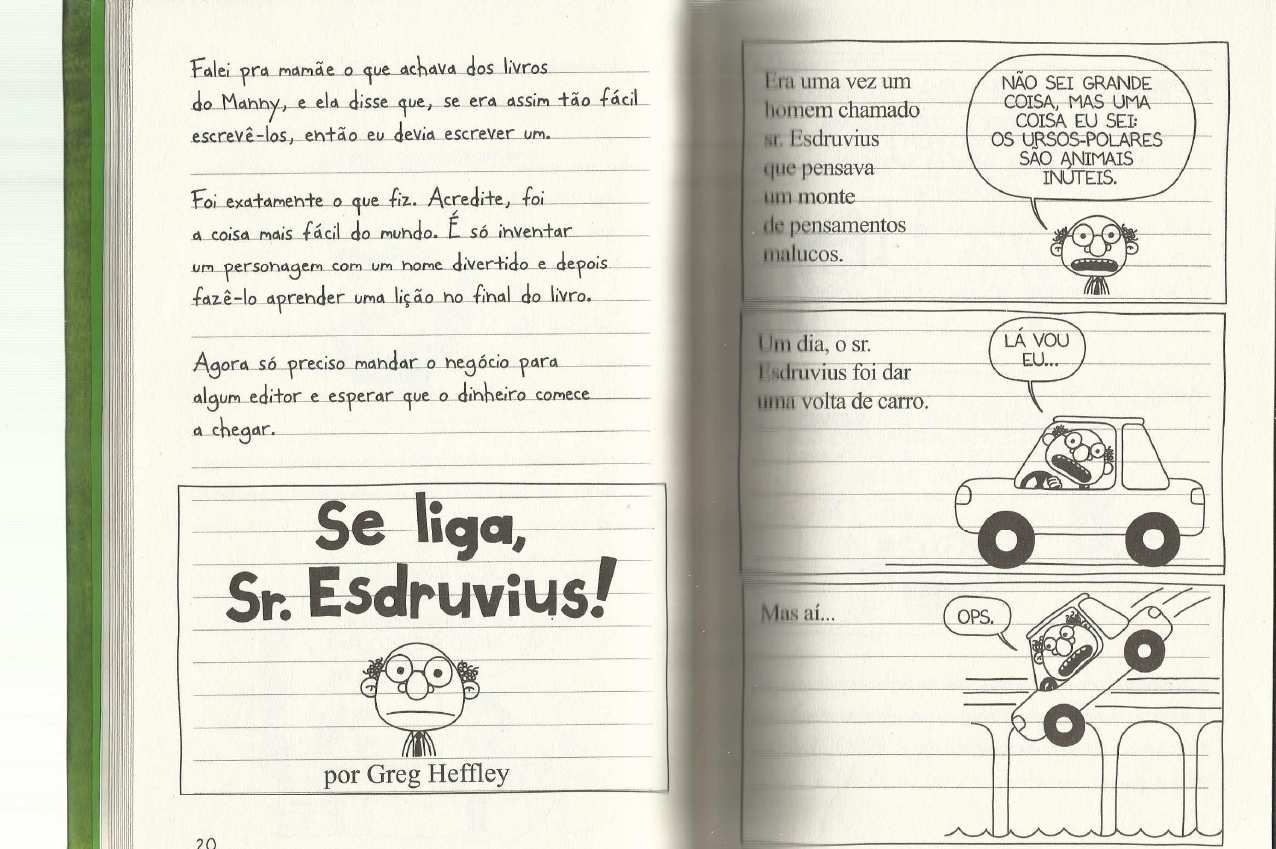 Falei pra mamãe o que achava dos livros
do Manny, e ela disse que, se era assim tão fácil
escrevê-los, então eu devia escrever um.
Foi exatamente o que fiz. Acredite, foi
a coisa mais fácil do mundo. É só inventar
um personagem com um nome divertido e depois
fazê-lo aprender uma lição no final do livro.
Agora só preciso mandar o negócio para
algum editor e esperar que o dinheiro comece
a chegar.
Se liga,
Sr. Esdruvius!
por Greg Heffley
20
Era uma vez um
homem chamado
sr. Esdruvius
que pensava
um monte
de pensamentos
malucos.
NÃO SEI GRANDE
COISA, MAS UMA
COISA EU SEI:
OS URSOS-POLARES
SÃO ANIMAIS
INÚTEIS.
Um dia, o sr.
Esdruvius foi dar
uma volta de carro.
LÁ VOU
EU...
Mas aí...
OPS.